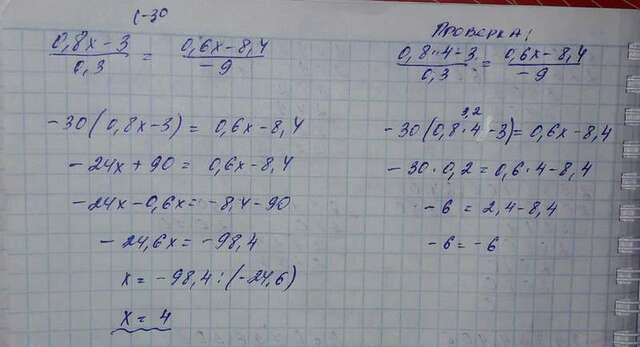 (-30
(0,8x-3)/0,3 = (0,6x-8,4)/-9
-30(0,8x-3)= 0,6x-8,4
-24x+90= 0,6x-8,4
-24x-0,6x=-8,4-90
-24,6x=-98,4
x=-98,4:(-24,6)
x= 4
Проверка:
(0,8·4-3)/0,3 = (0,6x-8,4)/-9
3,2
-30(0,8·4-3)=0,6x-8,4
-30·0,2=0,6·4-8,4
-6=2,4-8,4
-6=-6